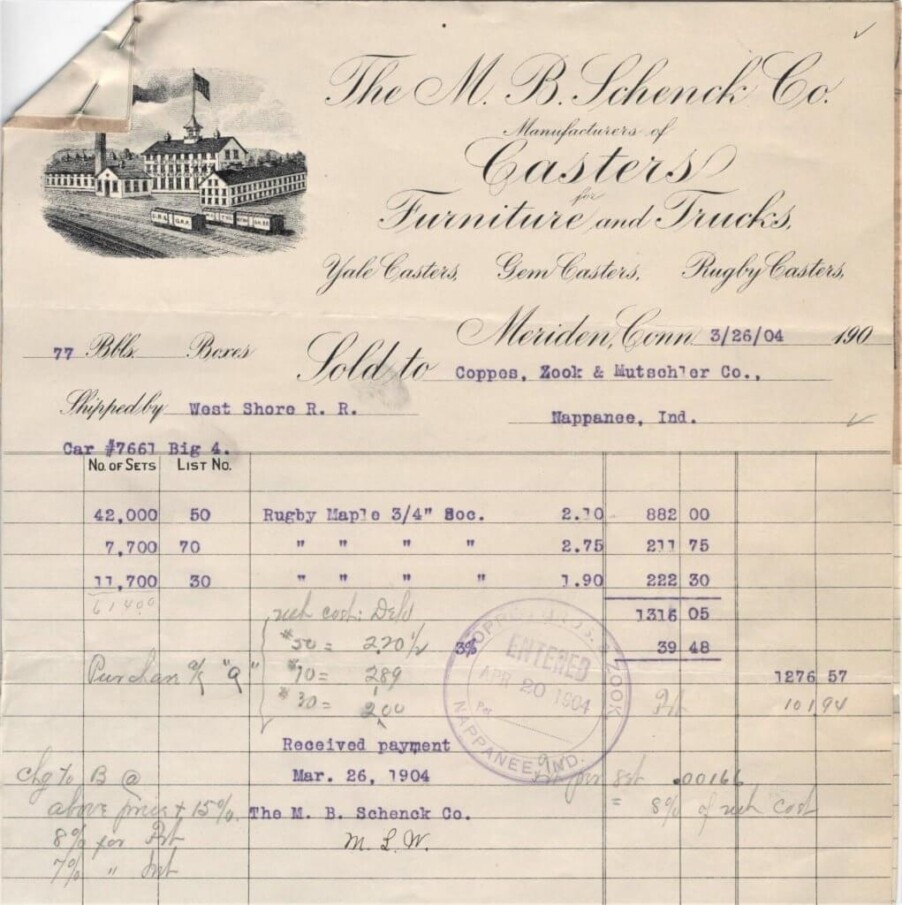 The M. B. Schenck Co.
Manufacturers of
Casters
for
Furniture and Trucks,
Yale Casters, Gem Casters, Rugby Casters,
Meriden, Conn 3/26/04 190
77 Bbls. Boxes
Sold to Coppes, Zook & Mutschler Co.,
Shipped by West Shore R. R.
Nappanee, Ind.
Car #7661 Big 4.
No. of Sets List No.
42,000 50 Rugby Maple 3/4" Soc. 2.10 882 00
7,700 70 " " " " 2.75 211 75
11,700 30 " " " " 1.90 222 30
61400
net cost: Deld
1316 05
#50 = 220½
3% 39 48
Purchase a/c "a" #70 = 289
1276 57
#30 = 200
Frt 101 94
COPPES ZOOK
ENTERED
APR 20 1904
Per
NAPPANEE, IND.
Received payment
Mar. 26, 1904
The M. B. Schenck Co.
M. L. W.
Chg to B @
above price + 15%.
8% for Frt
7% " Int
per set .00166
= 8% of net cost